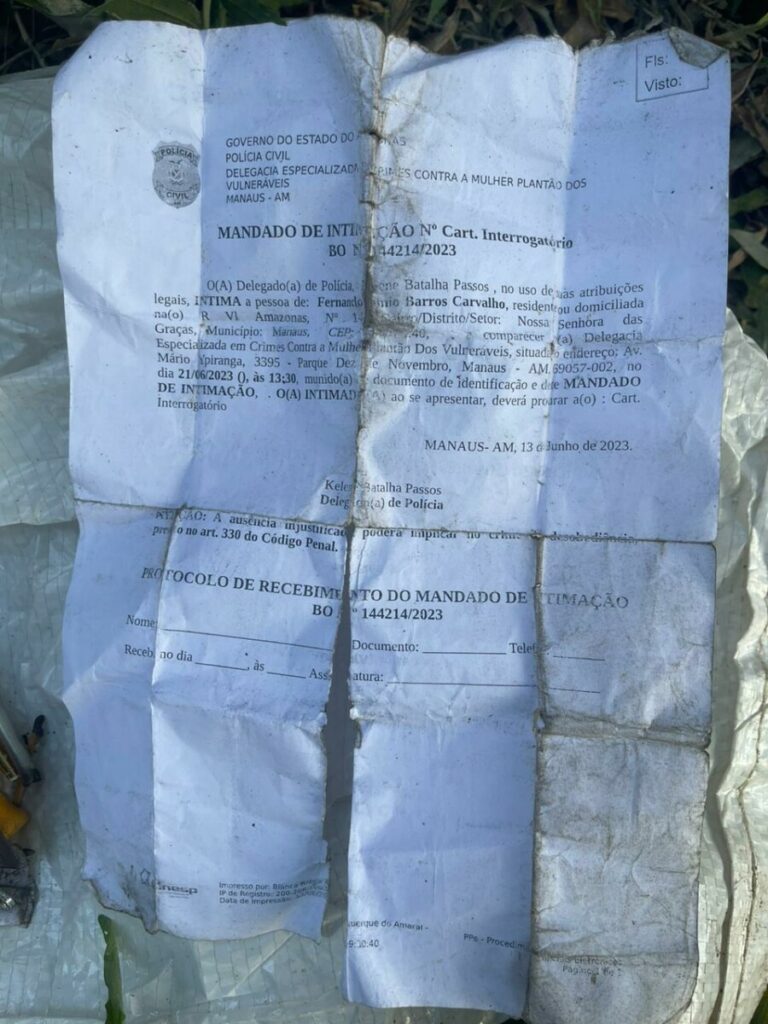 Fls:
Visto:
POLÍCIA
CIVIL
GOVERNO DO ESTADO DO
POLÍCIA CIVIL
DELEGACIA ESPECIALIZADA CONTRA A MULHER PLANTÃO DOS
VULNERÁVEIS
MANAUS - AM
MANDADO DE INTIMAÇÃO Nº Cart. Interrogatório
BO Nº 144214/2023
O(A) Delegado(a) de Polícia, Batalha Passos , no uso de suas atribuições
legais, INTIMA a pessoa de: Fernando Barros Carvalho, residente ou domiciliada
na(o) R VI Amazonas, Nº Nossa Senhora das
Graças, Município: Manaus, CEP: - comparecer (a) Delegacia
Especializada em Crimes Contra a Mulher Plantão Dos Vulneráveis, situada endereço: Av.
Mário Ypiranga, 3395 - Parque Dez de Novembro, Manaus - AM, 69057-002, no
dia 21/06/2023 (), às 13:30, munido(a) documento de identificação e deste MANDADO
DE INTIMAÇÃO, . O(A) INTIMADO(A) ao se apresentar, deverá procurar a(o) : Cart.
Interrogatório
MANAUS- AM, 13 de Junho de 2023.
Batalha Passos
Delegado(a) de Polícia
A ausência injustificada poderá implicar no crime desobediência,
no art. 330 do Código Penal.
PROTOCOLO DE RECEBIMENTO DO MANDADO DE INTIMAÇÃO
BO Nº 144214/2023
Nome: Documento: Telef.
Recebi no dia , às Assinatura:
Impresso por:
IP de Registro:
Data de Impressão:
do Amaral -
PPe -